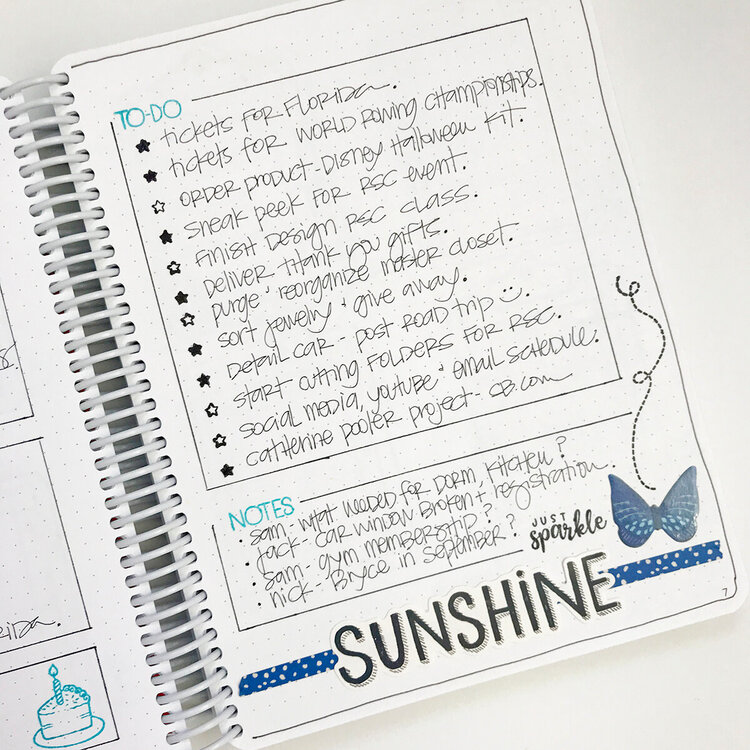 TO-DO
tickets for Florida.
tickets for World Rowing Championships.
order product - Disney Halloween Kit.
sneak peek for RSC event.
finish design RSC class.
deliver thank you gifts.
purge & reorganize master closet.
sort jewelry & give away.
detail car - post road trip
start cutting folders for RSC.
social media, youtube & email schedule.
catherine pooler project - CB.com
NOTES
• sam - what needed for dorm, kitchen?
• jack - car window broken + registration.
• sam - gym membership?
• nick - Bryce in September?
JUST
sparkle
SUNSHiNE
7